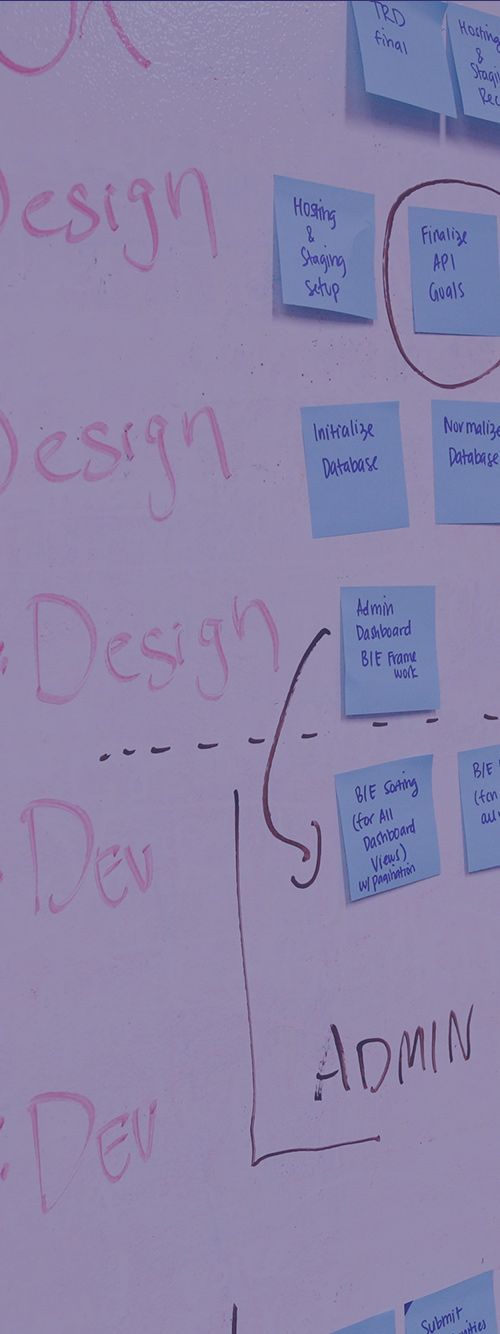 TRD
final
Hosting
&
Design
Hosting
&
Staging
Setup
Finalize
API
Goals
Design
Initialize
Database
Normalize
Database
Design
Admin
Dashboard
B/E Frame
work
Dev
B/E Sorting
(for All
Dashboard
Views)
w/ Pagination
B/E
ADMIN
Dev
Submit